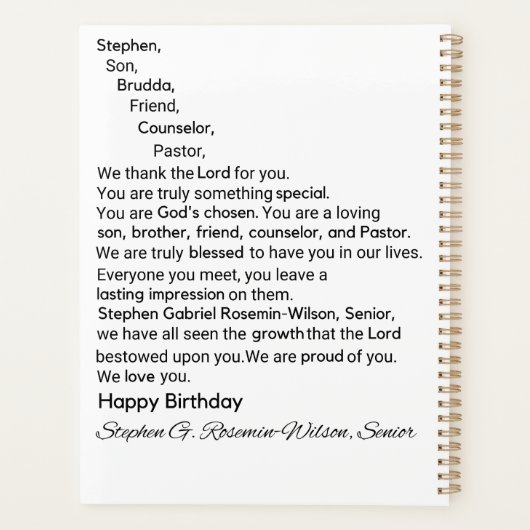 Stephen,
Son,
Brudda,
Friend,
Counselor,
Pastor,
We thank the Lord for you.
You are truly something special.
You are God's chosen. You are a loving
son, brother, friend, counselor, and Pastor.
We are truly blessed to have you in our lives.
Everyone you meet, you leave a
lasting impression on them.
Stephen Gabriel Rosemin-Wilson, Senior,
we have all seen the growth that the Lord
bestowed upon you.We are proud of you.
We love you.
Happy Birthday
Stephen G. Rosemin-Wilson, Senior